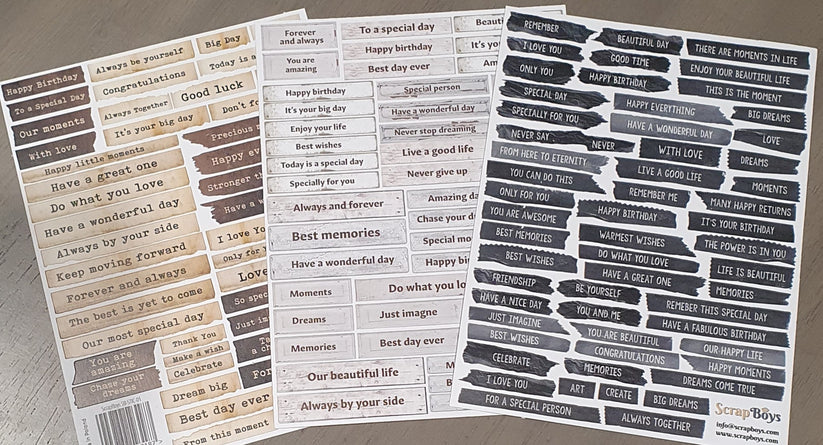 Happy Birthday
To a Special Day
Our moments
With love
Always be yourself
Big Day
Congratulations
Today is a
Always Together
Good luck
It's your big day
Don't fo
Happy little moments
Have a great one
Do what you love
Have a wonderful day
Always by your side
Keep moving forward
Forever and always
The best is yet to come
Our most special day
You are
amazing
Chase your
dreams
Thank You
Make a wish
Celebrate
Dream big
Best day ever
From this moment
Precious m
Happy eve
Stronger th
Have a w
I love Yo
Only for
Love
So spec
Just im
Ta
a ch
For
Forever
and always
You are
amazing
To a special day
Happy birthday
Best day ever
Beauti
It's yo
Am
Happy birthday
It's your big day
Enjoy your life
Best wishes
Today is a special day
Specially for you
Special person
Have a wonderful day
Never stop dreaming
Live a good life
Never give up
Always and forever
Best memories
Have a wonderful day
Amazing da
Chase your d
Special mo
Happy bi
Moments
Dreams
Memories
Do what you lo
Just imagne
Best day ever
Our beautiful life
Always by your side
M
B
REMEMBER
I LOVE YOU
ONLY YOU
SPECIAL DAY
SPECIALLY FOR YOU
NEVER SAY
NEVER
FROM HERE TO ETERNITY
YOU CAN DO THIS
ONLY FOR YOU
YOU ARE AWESOME
BEST MEMORIES
BEST WISHES
FRIENDSHIP
HAVE A NICE DAY
JUST IMAGINE
BEST WISHES
CELEBRATE
I LOVE YOU
FOR A SPECIAL PERSON
BEAUTIFUL DAY
GOOD TIME
HAPPY BIRTHDAY
HAPPY EVERYTHING
HAVE A WONDERFUL DAY
WITH LOVE
LIVE A GOOD LIFE
REMEMBER ME
HAPPY BIRTHDAY
WARMEST WISHES
DO WHAT YOU LOVE
HAVE A GREAT ONE
BE YOURSELF
YOU AND ME
YOU ARE BEAUTIFUL
CONGRATULATIONS
MEMORIES
ART
CREATE
BIG DREAMS
ALWAYS TOGETHER
THERE ARE MOMENTS IN LIFE
ENJOY YOUR BEAUTIFUL LIFE
THIS IS THE MOMENT
BIG DREAMS
LOVE
DREAMS
MOMENTS
MANY HAPPY RETURNS
IT'S YOUR BIRTHDAY
THE POWER IS IN YOU
LIFE IS BEAUTIFUL
MEMORIES
REMEBER THIS SPECIAL DAY
HAVE A FABULOUS BIRTHDAY
OUR HAPPY LIFE
HAPPY MOMENTS
DREAMS COME TRUE
ScrapBoys
info@scrapboys.com
www.scrapboys.com